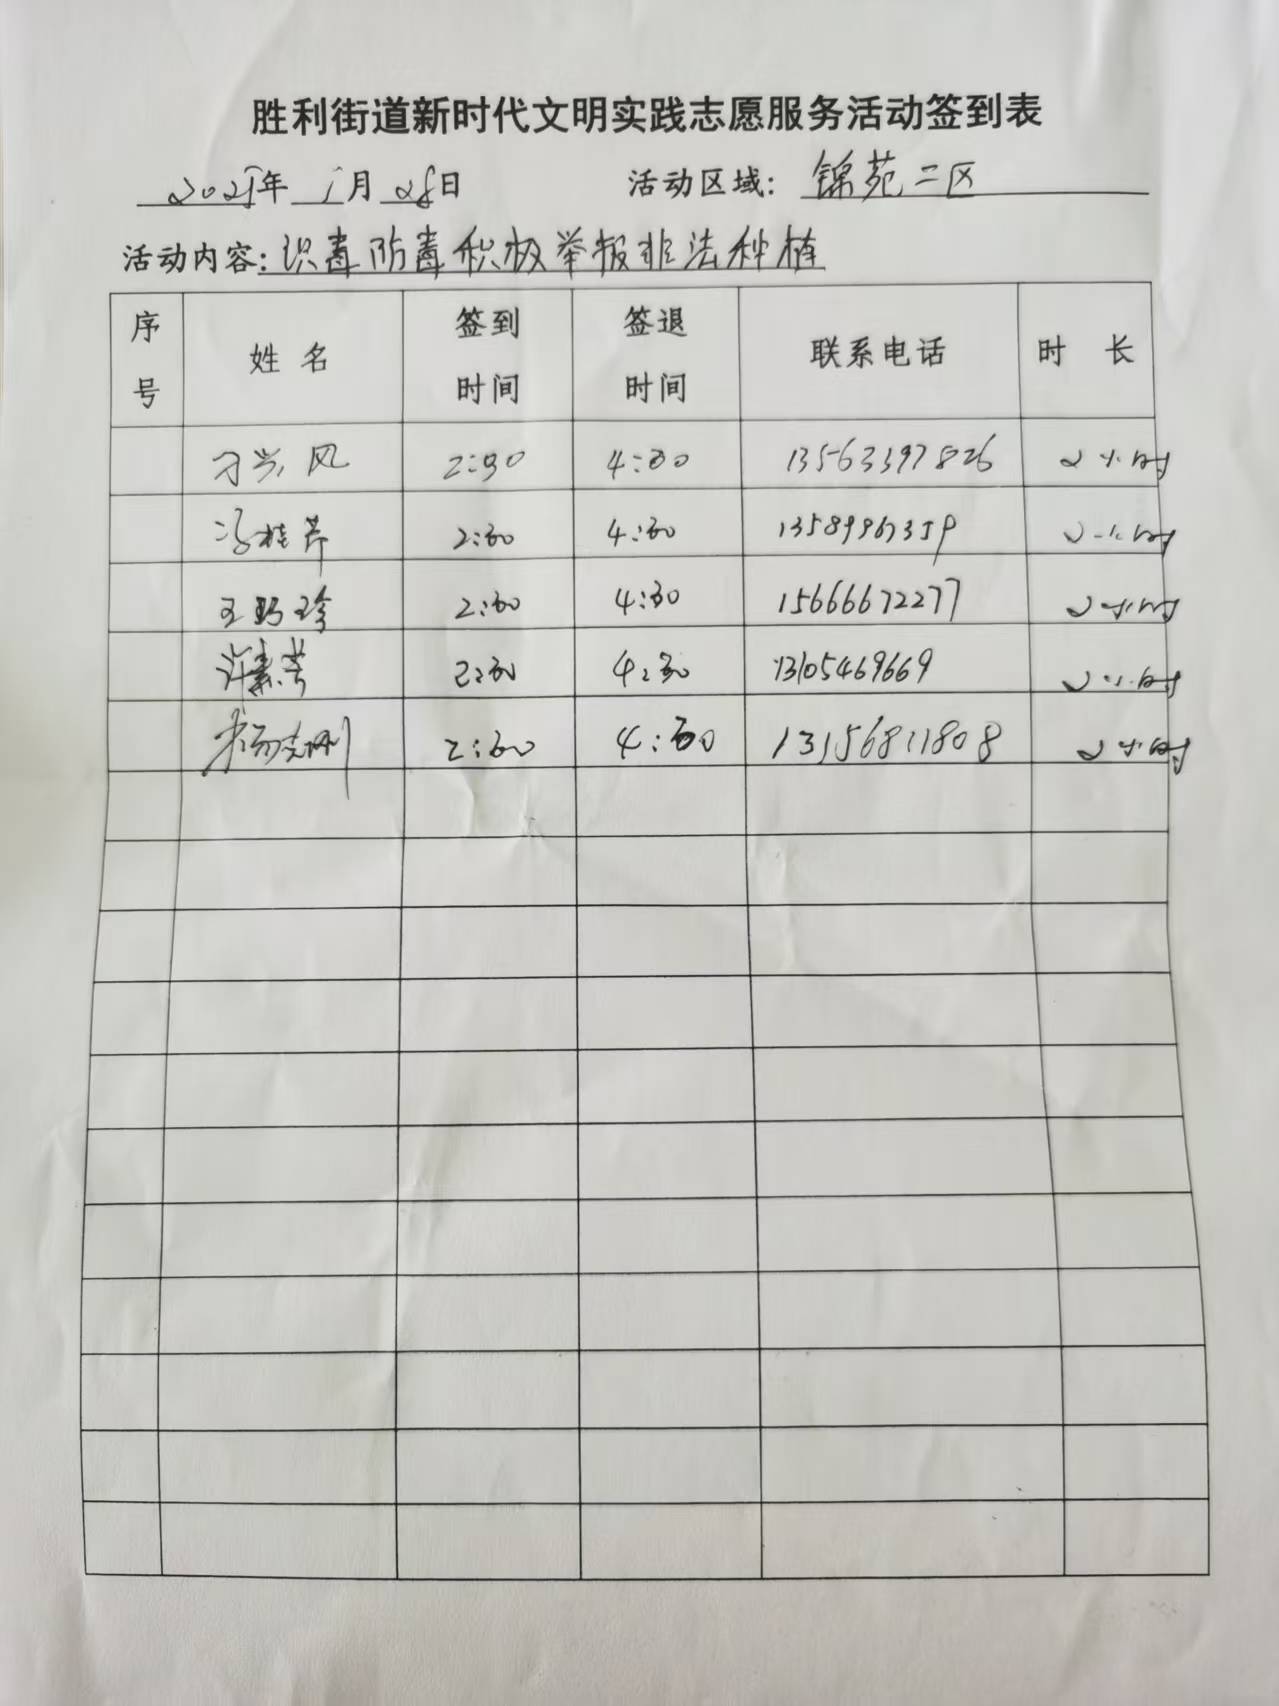 胜利街道新时代文明实践志愿服务活动签到表
2025年 1月 28日 活动区域：锦苑二区
活动内容：识毒防毒积极举报非法种植
序号 姓名 签到时间 签退时间 联系电话 时长
刁兴风 2:30 4:30 13563397826 2小时
冯桂芹 2:30 4:30 13589967359 2小时
王巧珍 2:30 4:30 15666672277 2小时
许素芳 2:30 4:30 13105469669 2小时
2:30 4:30 13156811808 2小时